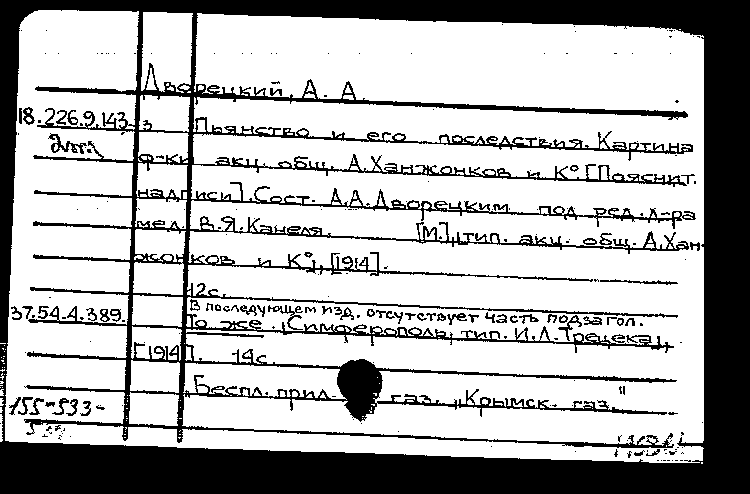 Дворецкий, А. А.
18.226.9.143-3 Пьянство и его последствия. Картина
ф-ки акц. общ. А.Ханжонков и К°. [Пояснит.
надписи]. Сост. А.А.Дворецким под ред. д-ра
мед. В.Я.Канеля. [М.], тип. акц. общ. А.Хан-
жонков и К°, [1914].
12с.
В последующем изд. отсутствует часть подзагол.
37.54.4.389. То же. Симферополь, тип. И.Л.Трецека,
[1914]. 14с.
Беспл. прил. газ. „Крымск. газ."
155-533-